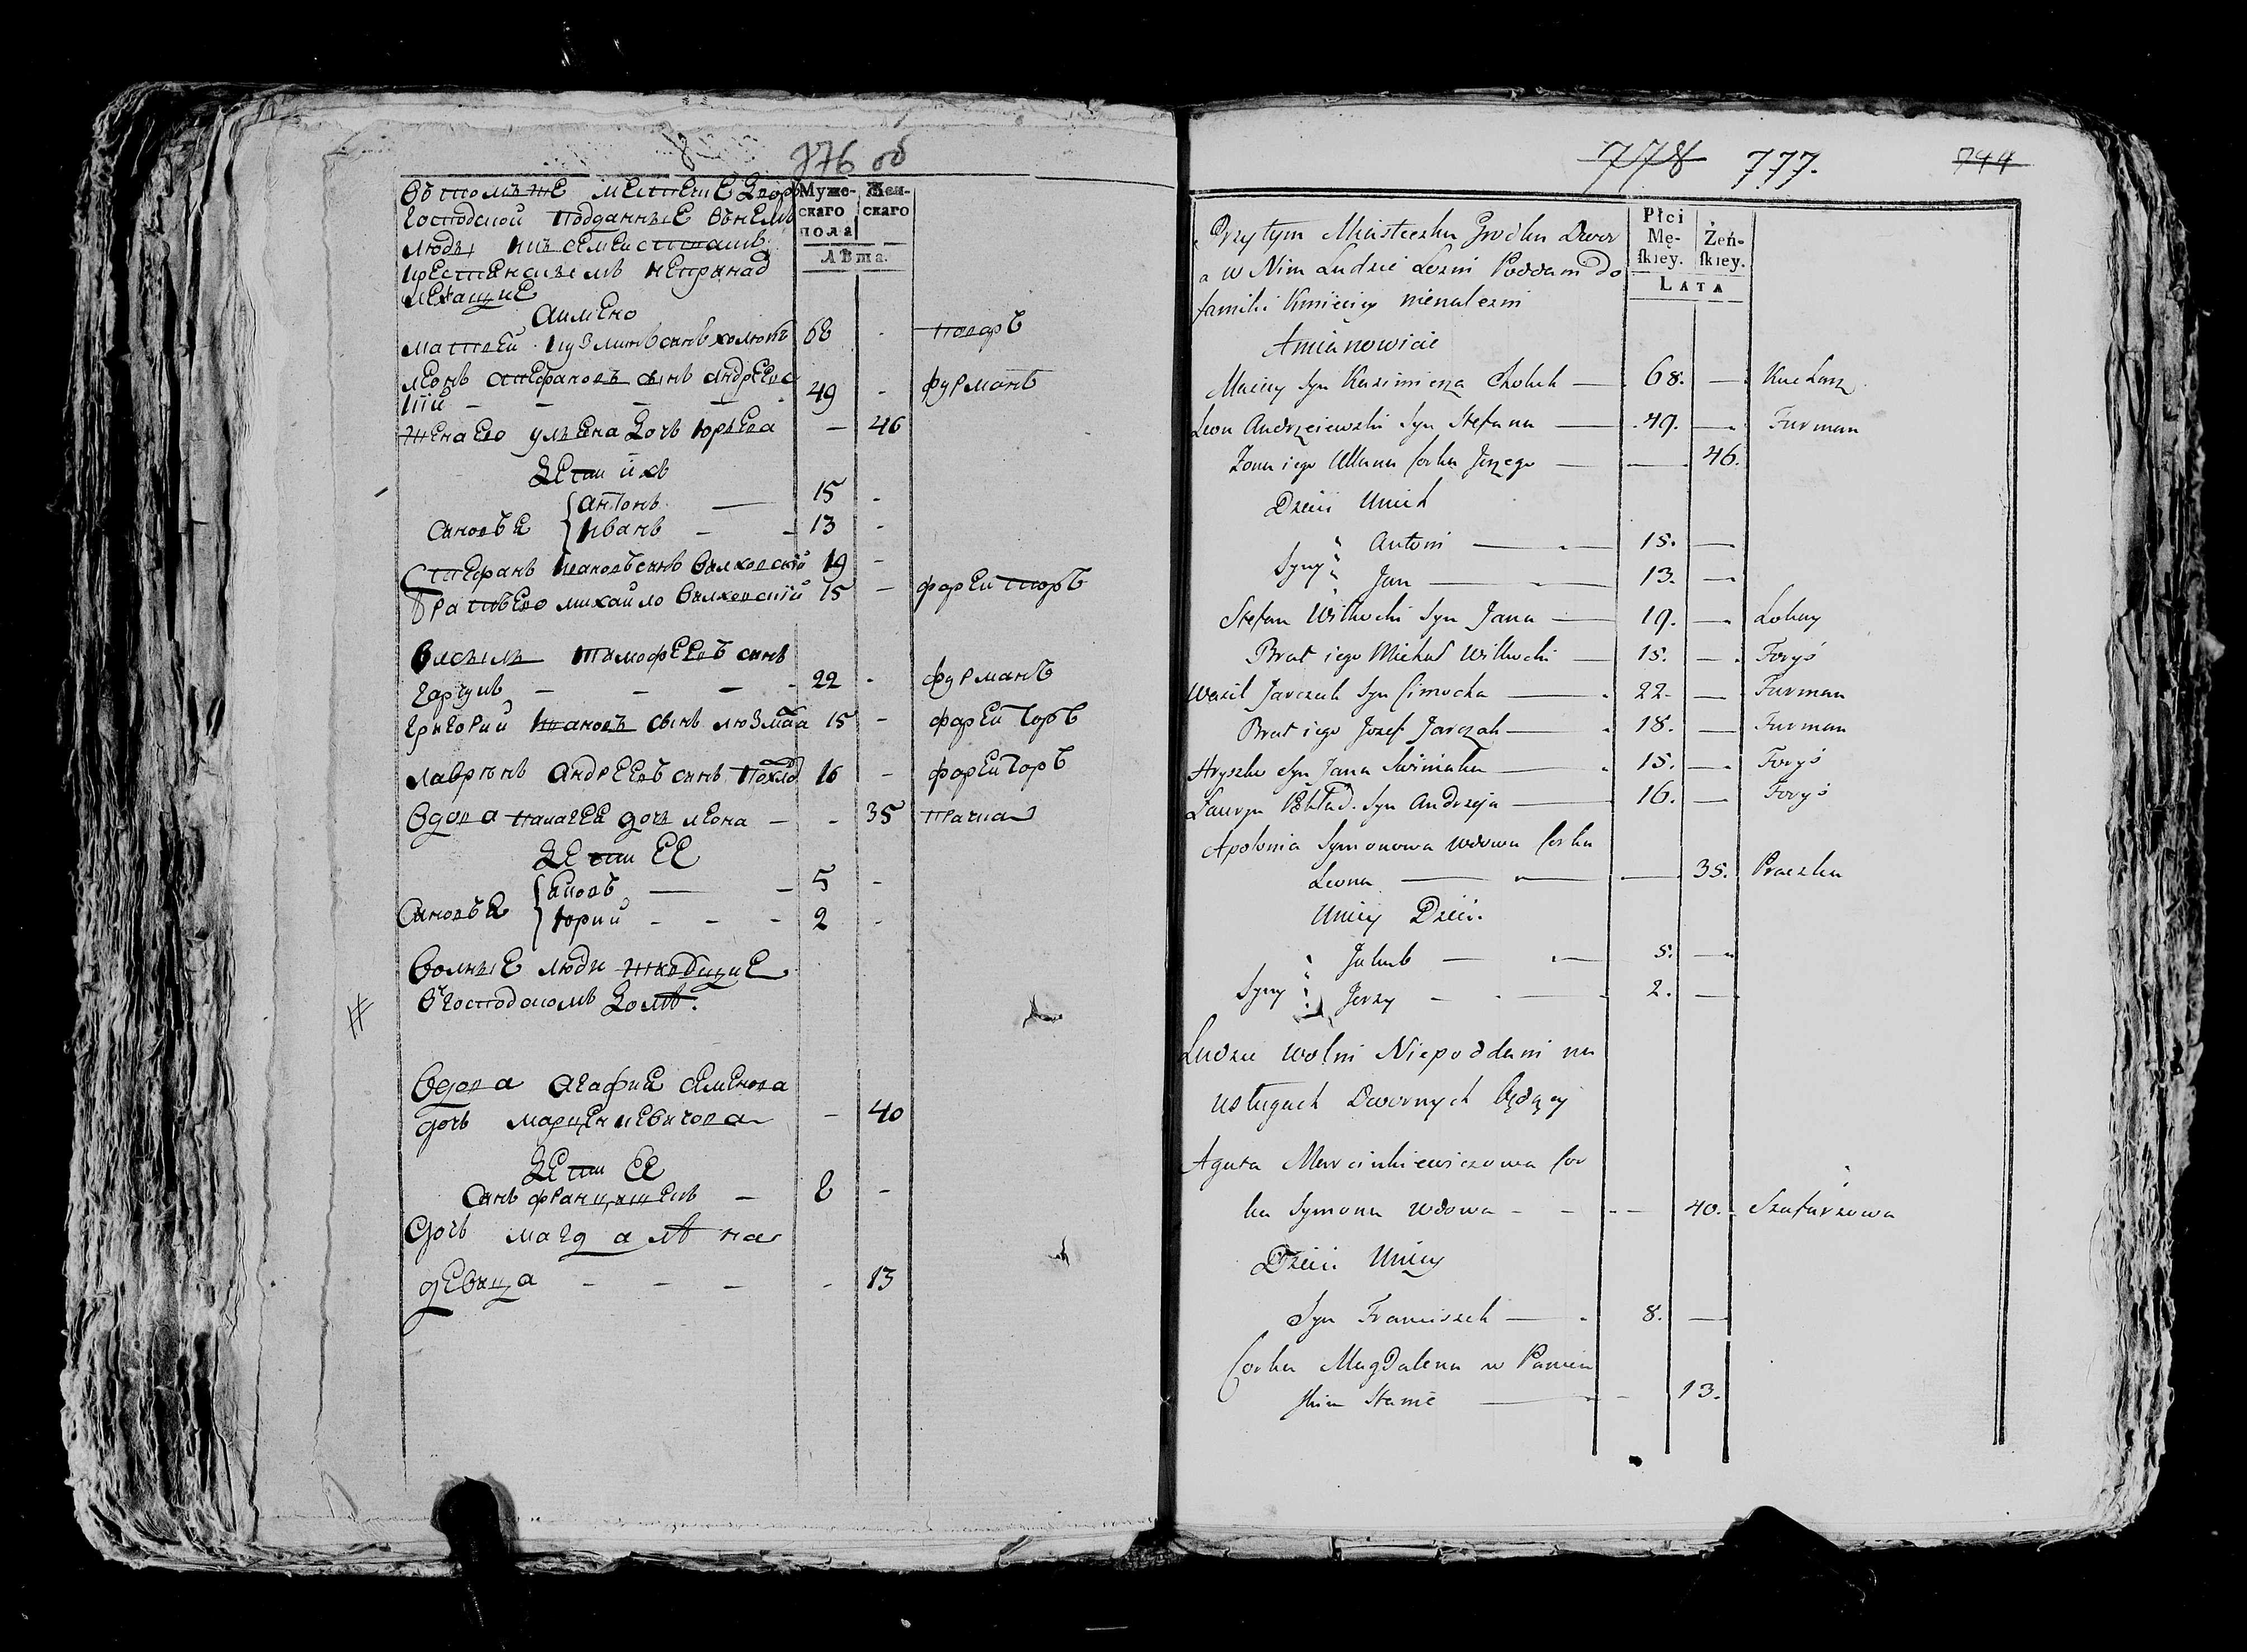 776 об
въ томъ же местечке двор
господской подданные въ нем
люди
крестьянскимъ непринад
лежащие
аимено
Муже-
скаго
пола
Жен-
скаго
Лѣта.
матвей сынъ 68 - поваръ
леонъ стефановъ сынъ андреевс
кій - - - - 49 - фурманъ
жена ево уляна дочь юрьева - 46
дети ихъ
сыновья
антонъ — 15 -
иванъ - - 13 -
Стефанъ ивановъ сынъ вилковскій 19 -
братъ ево михайло вилковскій 15 - фарейторъ
василь тимофеевъ сынъ
гарчукъ - - - - 22 - фурманъ
григорий ивановъ сынъ 15 - фарейторъ
лавринъ андреевъ сынъ поклад 16 - фарейторъ
вдова палагея дочь леона - - 35 прачка
дети ее
сыновья
яковъ — - 5 -
юрий - - - 2 -
вольные люди
в господскомъ доме.
вдова агафия семенова
дочь марценкевичова - 40
дети ее
сынъ францишекъ - 8 -
дочь магдалена
девица - - - - 13
778 777. 744
Przytym Miasteczku Grodku Dwor
a w Nim Ludzie Lozni Poddani do
familii Kmieciey nienalezni
Amianowicie
Płci
Mę-
ſkiey.
Żeń-
ſkiey.
LATA
Maciey Syn Kazimierza Choluk — 68. — Kucharz
Leon Andrzeiewski Syn Stefana — 49. — Furman
Zona iego Ullana Corka Jerzego — — 46.
Dzieci Unich
Syny
Antoni — 15. —
Jan — 13. —
Stefan Wilkocki Syn Jana — 19. — Lokay
Brat iego Michał Wilkocki — 15. — Foryś
Wasil Jarczuk Syn Cimocha — 22. — Furman
Brat iego Jozef Jarczak — 18. — Furman
Hryszko Syn Jana — 15. — Foryś
Ławryn Pokład. Syn Andrzeja — 16. — Foryś
Apolonia Symonowa wdowa Corka
Leona — — 35. Praczka
Uniey Dzieci.
Syny
Jakub — 5. —
Jerzy — 2. —
Ludzie wolni Niepoddani na
usługach Dwornych będący
Agata Marcinkiewiczowa Cor
ka Symona wdowa - - - - 40. Szafarzowa
Dzieci Uniey
Syn Franciszek — 8. —
Corka Magdalena w Panien
skim Stanie — - 13.